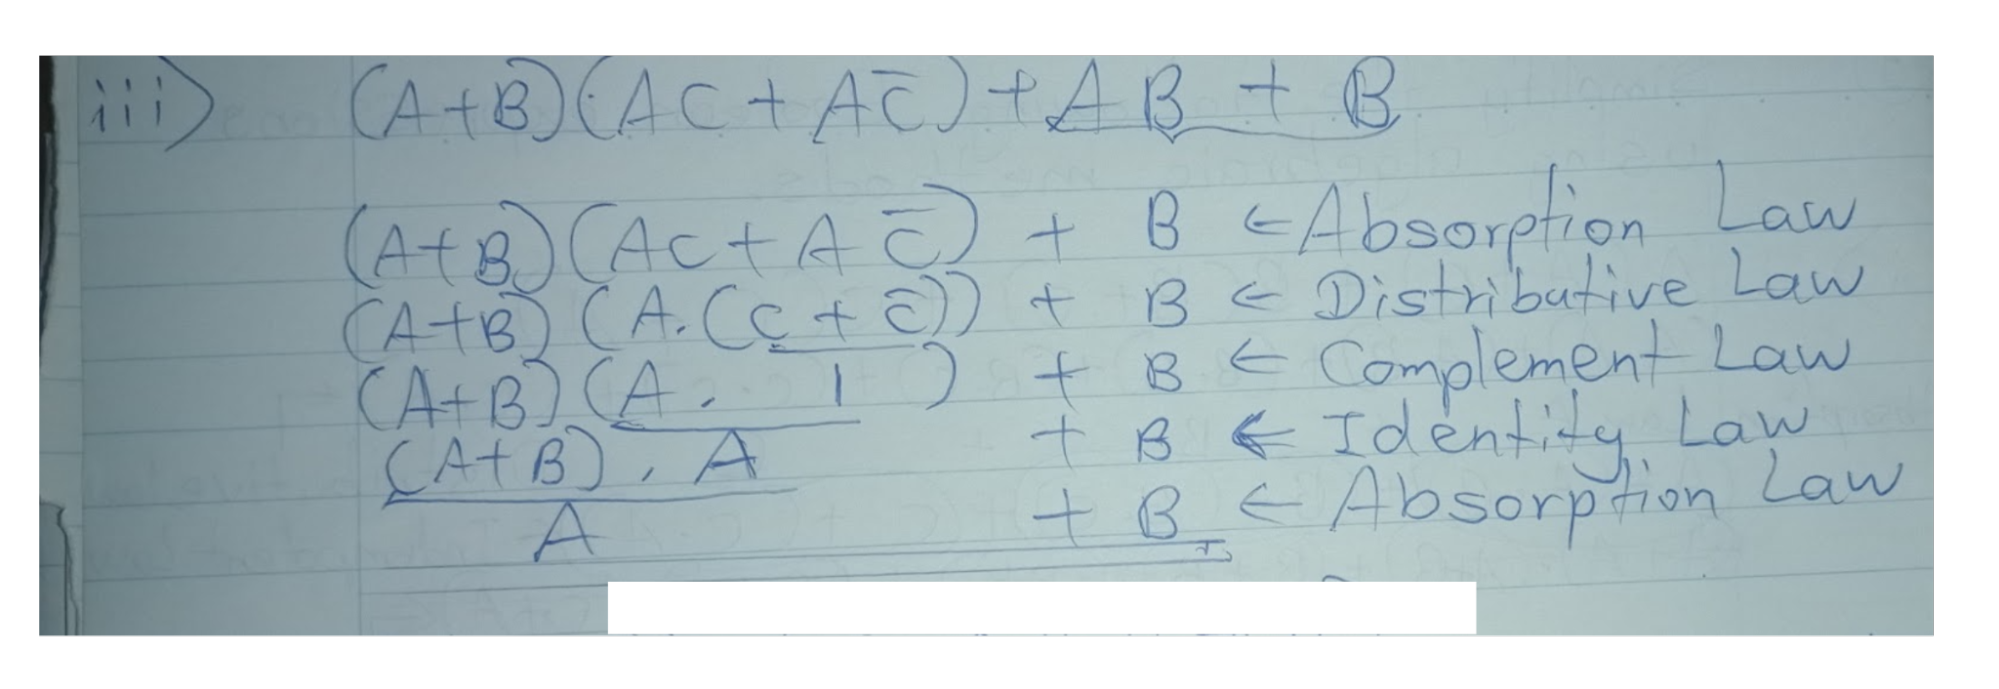 iii) (A+B)(AC + AC̅) + AB + B
(A+B)(AC + A C̅) + B ← Absorption Law
(A+B)(A.(C + C̅)) + B ← Distributive Law
(A+B)(A . 1) + B ← Complement Law
(A+B) . A + B ← Identity Law
A + B ← Absorption Law